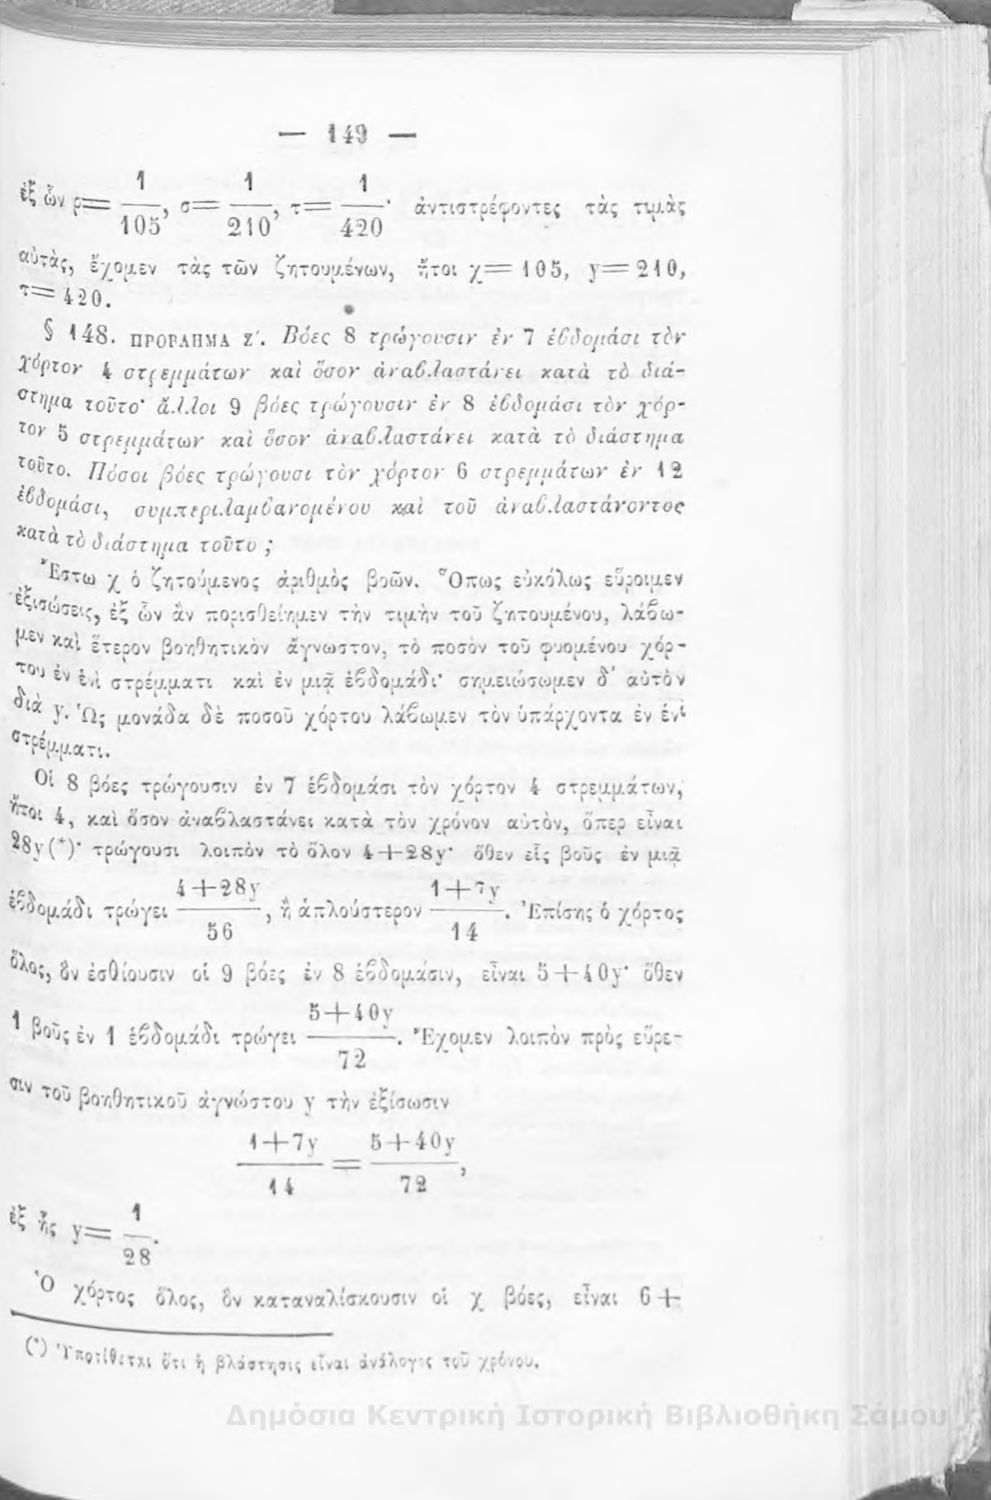 — 149 —
ἐξ ὧν ρ= 1/105, σ= 1/210, τ= 1/420· ἀντιστρέφοντες τὰς τιμὰς
αὐτὰς, ἔχομεν τὰς τῶν ζητουμένων, ἤτοι χ=105, y=210,
τ=420.
§ 148. ΠΡΟΒΛΗΜΑ Ζ΄. Βόες 8 τρώγουσιν ἐν 7 ἑβδομάσι τὸν
χόρτον 4 στρεμμάτων καὶ ὅσον ἀναβλαστάνει κατὰ τὸ διά-
στημα τοῦτο· ἄλλοι 9 βόες τρώγουσιν ἐν 8 ἑβδομάσι τὸν χόρ-
τον 5 στρεμμάτων καὶ ὅσον ἀναβλαστάνει κατὰ τὸ διάστημα
τοῦτο. Πόσοι βόες τρώγουσι τὸν χόρτον 6 στρεμμάτων ἐν 12
ἑβδομάσι, συμπεριλαμβανομένου καὶ τοῦ ἀναβλαστάνοντος
κατὰ τὸ διάστημα τοῦτο ;
Ἔστω χ ὁ ζητούμενος ἀριθμὸς βοῶν. Ὅπως εὐκόλως εὕροιμεν
ἐξισώσεις, ἐξ ὧν ἂν πορισθείημεν τὴν τιμὴν τοῦ ζητουμένου, λάβω-
μεν καὶ ἕτερον βοηθητικὸν ἄγνωστον, τὸ ποσὸν τοῦ φυομένου χόρ-
του ἐν ἑνὶ στρέμματι καὶ ἐν μιᾷ ἑβδομάδι· σημειώσωμεν δ' αὐτὸν
διὰ y. Ὡς μονάδα δὲ ποσοῦ χόρτου λάβωμεν τὸν ὑπάρχοντα ἐν ἑνὶ
στρέμματι.
Οἱ 8 βόες τρώγουσιν ἐν 7 ἑβδομάσι τὸν χόρτον 4 στρεμμάτων,
ἤτοι 4, καὶ ὅσον ἀναβλαστάνει κατὰ τὸν χρόνον αὐτὸν, ὅπερ εἶναι
28y(*)· τρώγουσι λοιπὸν τὸ ὅλον 4+28y· ὅθεν εἷς βοῦς ἐν μιᾷ
ἑβδομάδι τρώγει 4+28y/56, ἢ ἁπλούστερον 1+7y/14. Ἐπίσης ὁ χόρτος
ὅλος, ὃν ἐσθίουσιν οἱ 9 βόες ἐν 8 ἑβδομάσιν, εἶναι 5+40y· ὅθεν
1 βοῦς ἐν 1 ἑβδομάδι τρώγει 5+40y/72. Ἔχομεν λοιπὸν πρὸς εὕρε-
σιν τοῦ βοηθητικοῦ ἀγνώστου y τὴν ἐξίσωσιν
1+7y/14 = 5+40y/72,
ἐξ ἧς y= 1/28.
Ὁ χόρτος ὅλος, ὃν καταναλίσκουσιν οἱ χ βόες, εἶναι 6+
(*) Ὑποτίθεται ὅτι ἡ βλάστησις εἶναι ἀνάλογος τοῦ χρόνου.
Δημόσια Κεντρική Ιστορική Βιβλιοθήκη Σάμου